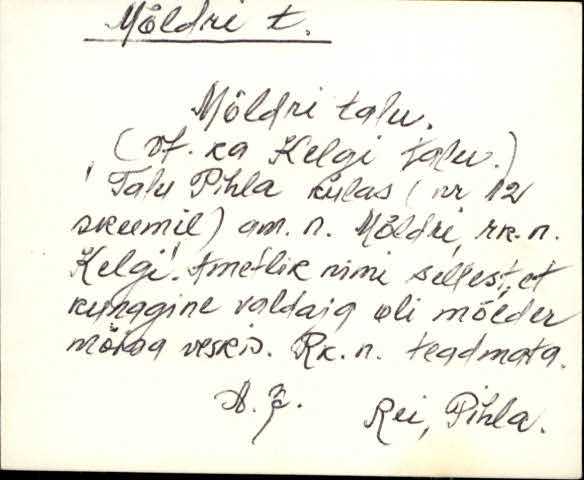 Möldri t.
Möldri talu.
(Vt. ka Kelgi talu.)
Talu Pihla külas (nr 12
skeemil) am. n. Möldri, rk. n.
Kelgi. Ametlik nimi sellest, et
kunagine valdaja oli mölder
mõnda veskis. Rk. n. teadmata.
Rei, Pihla.